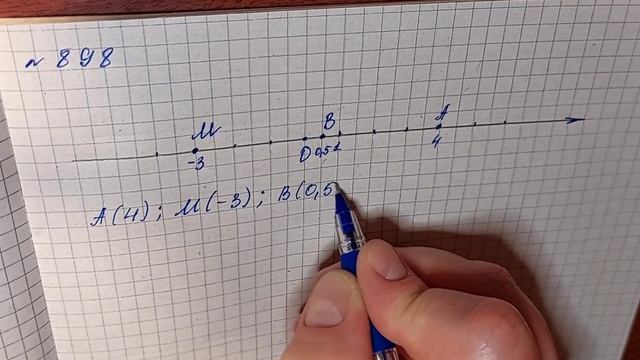 № 898
M B A
-3 0 0,5 1 4
A(4); M(-3); B(0,5